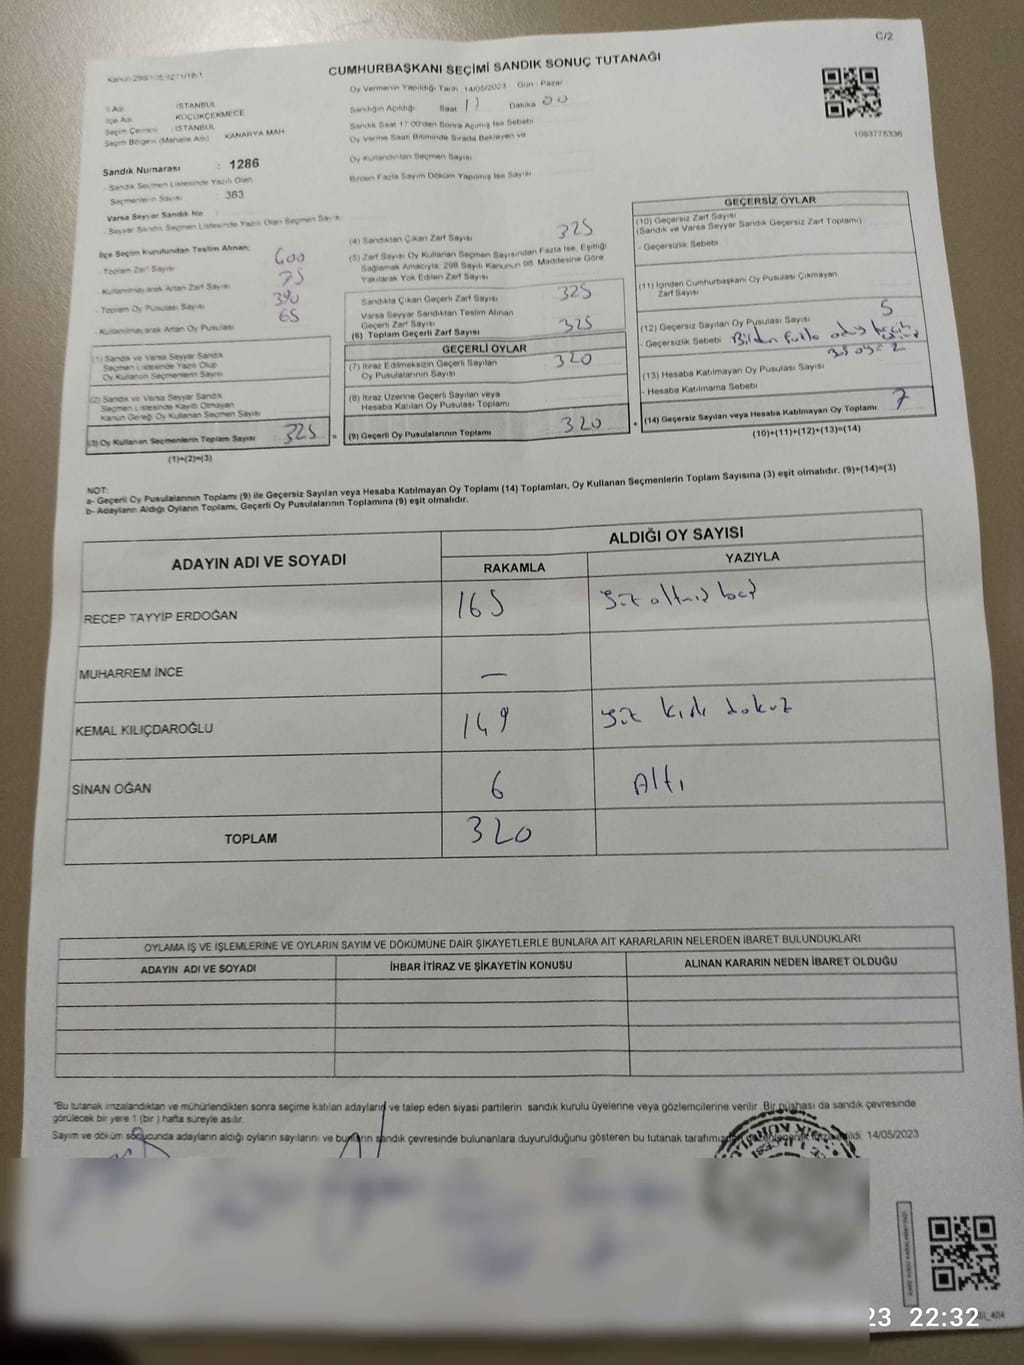 C/2
CUMHURBAŞKANI SEÇİMİ SANDIK SONUÇ TUTANAĞI
İl Adı İSTANBUL
İlçe Adı KÜÇÜKÇEKMECE
Seçim Çevresi : İSTANBUL
Seçim Bölgesi (Mahalle Adı) : KANARYA MAH
Sandık Numarası : 1286
- Sandık Seçmen Listesinde Yazılı Olan
Seçmenlerin Sayısı : 363
Varsa Seyyar Sandık No
- Seyyar Sandık Seçmen Listesinde Yazılı Olan Seçmen Sayısı
Oy Vermenin Yapıldığı Tarih 14/05/2023 Gün : Pazar
Sandığın Açıldığı Saat Dakika 00
Sandık Saat 17:00'den Sonra Açılmış İse Sebebi
Oy Verme Saati Bitiminde Sırada Bekleyen ve
Oy Kullandırılan Seçmen Sayısı
Birden Fazla Sayım Döküm Yapılmış İse Sayısı
1093775336
İlçe Seçim Kurulundan Teslim Alınan;
- Toplam Zarf Sayısı 600
- Kullanılmayarak Artan Zarf Sayısı 75
- Toplam Oy Pusulası Sayısı 390
- Kullanılmayarak Artan Oy Pusulası 65
(1) Sandık ve Varsa Seyyar Sandık
Seçmen Listesinde Yazılı Olup
Oy Kullanan Seçmenlerin Sayısı
(2) Sandık ve Varsa Seyyar Sandık
Seçmen Listesinde Kayıtlı Olmayan
Kanun Gereği Oy Kullanan Seçmen Sayısı
(3) Oy Kullanan Seçmenlerin Toplam Sayısı 325 =
(1)+(2)=(3)
(4) Sandıktan Çıkan Zarf Sayısı 325
(5) Zarf Sayısı Oy Kullanan Seçmen Sayısından Fazla İse, Eşitliği
Sağlamak Amacıyla, 298 Sayılı Kanunun 98. Maddesine Göre
Yakılarak Yok Edilen Zarf Sayısı
Sandıkta Çıkan Geçerli Zarf Sayısı 325
Varsa Seyyar Sandıktan Teslim Alınan
Geçerli Zarf Sayısı
(6) Toplam Geçerli Zarf Sayısı 325
GEÇERLİ OYLAR
(7) İtiraz Edilmeksizin Geçerli Sayılan
Oy Pusulalarının Sayısı 320
(8) İtiraz Üzerine Geçerli Sayılan veya
Hesaba Katılan Oy Pusulası Toplamı
(9) Geçerli Oy Pusulalarının Toplamı 320 +
GEÇERSİZ OYLAR
(10) Geçersiz Zarf Sayısı
(Sandık ve Varsa Seyyar Sandık Geçersiz Zarf Toplamı)
- Geçersizlik Sebebi
(11) İçinden Cumhurbaşkanı Oy Pusulası Çıkmayan
Zarf Sayısı
(12) Geçersiz Sayılan Oy Pusulası Sayısı 5
- Geçersizlik Sebebi
(13) Hesaba Katılmayan Oy Pusulası Sayısı
- Hesaba Katılmama Sebebi
(14) Geçersiz Sayılan veya Hesaba Katılmayan Oy Toplamı 7
(10)+(11)+(12)+(13)=(14)
NOT:
a- Geçerli Oy Pusulalarının Toplamı (9) ile Geçersiz Sayılan veya Hesaba Katılmayan Oy Toplamı (14) Toplamları, Oy Kullanan Seçmenlerin Toplam Sayısına (3) eşit olmalıdır. (9)+(14)=(3)
b- Adayların Aldığı Oyların Toplamı, Geçerli Oy Pusulalarının Toplamına (9) eşit olmalıdır.
ADAYIN ADI VE SOYADI
ALDIĞI OY SAYISI
RAKAMLA YAZIYLA
RECEP TAYYİP ERDOĞAN 165 yüz altmış beş
MUHARREM İNCE —
KEMAL KILIÇDAROĞLU 149 yüz kırk dokuz
SİNAN OĞAN 6 Altı
TOPLAM 320
OYLAMA İŞ VE İŞLEMLERİNE VE OYLARIN SAYIM VE DÖKÜMÜNE DAİR ŞİKAYETLERLE BUNLARA AİT KARARLARIN NELERDEN İBARET BULUNDUKLARI
ADAYIN ADI VE SOYADI İHBAR İTİRAZ VE ŞİKAYETİN KONUSU ALINAN KARARIN NEDEN İBARET OLDUĞU
"Bu tutanak imzalandıktan ve mühürlendikten sonra seçime katılan adayların ve talep eden siyasi partilerin sandık kurulu üyelerine veya gözlemcilerine verilir. Bir nüshası da sandık çevresinde
görülecek bir yere 1 (bir) hafta süreyle asılır.
Sayım ve döküm sonucunda adayların aldığı oyların sayılarını ve bunların sandık çevresinde bulunanlara duyurulduğunu gösteren bu tutanak 14/05/2023
23 22:32